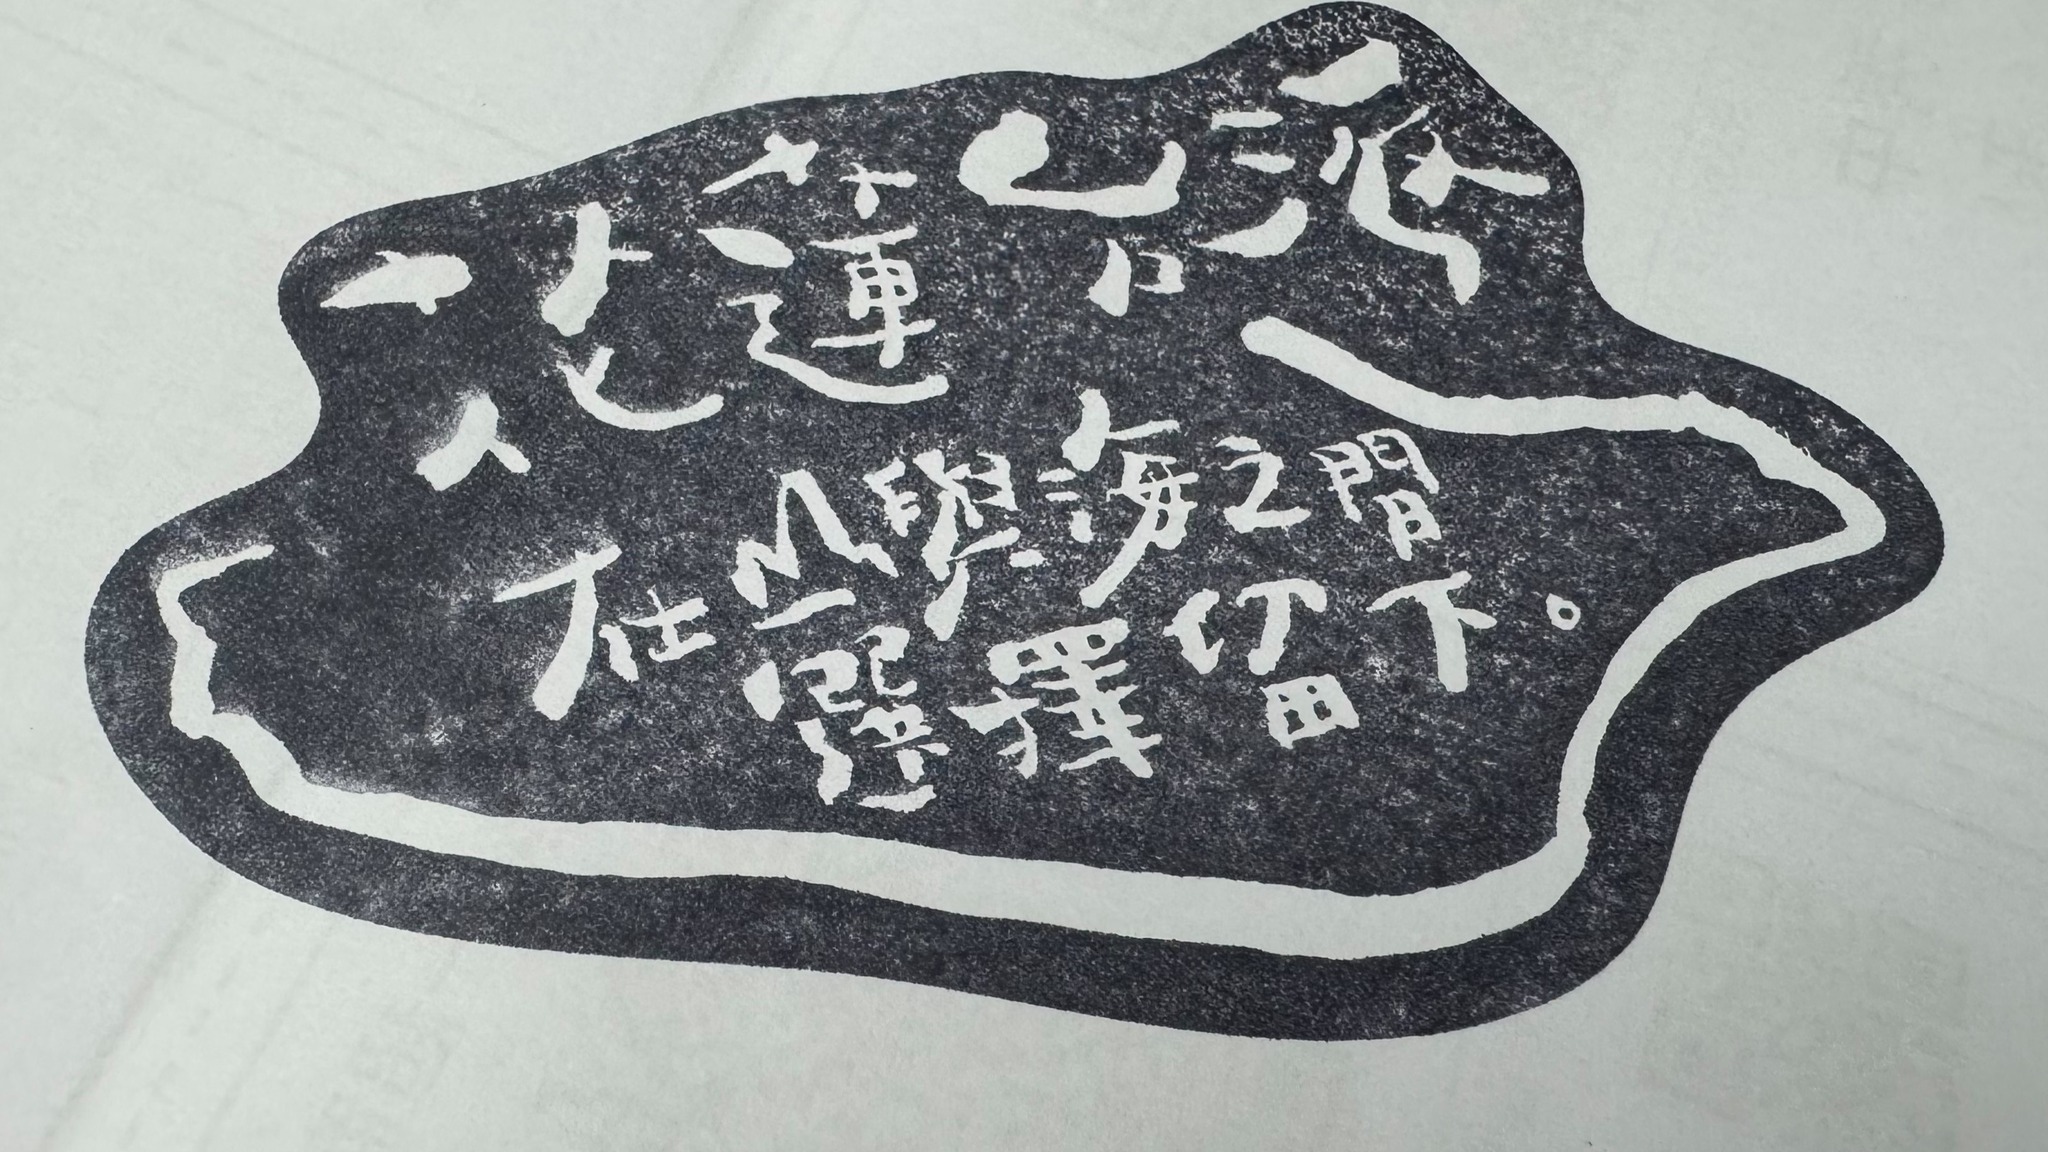 花蓮台派
在山與海之間
選擇留下。